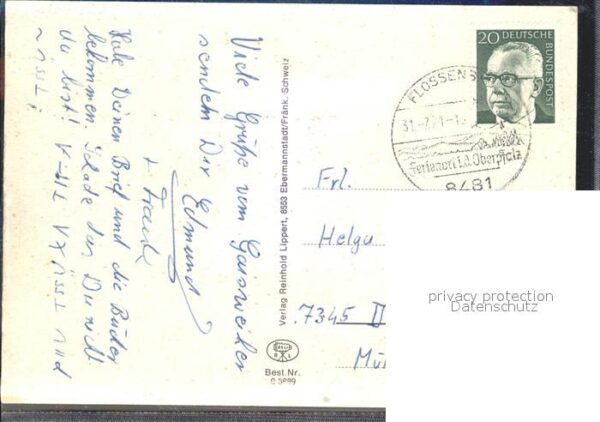 Viele Grüße vom Gaisweiher
senden Dir Edmund
+ Traudl
Habe Deinen Brief und die Bilder
bekommen. Schade das Du nicht
da bist!
Verlag Reinhold Lippert, 8553 Ebermannstadt/Fränk. Schweiz
Best.Nr.
20 DEUTSCHE
BUNDESPOST
FLOSSENB
31.-7.71-1
Ferienort i.d. Oberpfalz
8481
Frl.
Helga
7345
Mü
privacy protection
Datenschutz